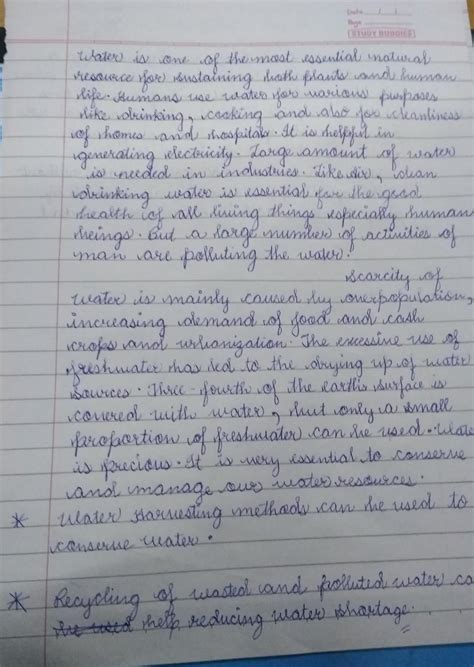 Date / /
Page
STUDY BUDDIES
Water is one of the most essential natural
resource for sustaining both plants and human
life. Humans use water for various purposes
like drinking, cooking and also for cleanliness
of homes and hospitals. It is helpful in
generating electricity. Large amount of water
is needed in industries. Like air, clean
drinking water is essential for the good
health of all living things especially human
beings. But a large number of activities of
man are polluting the water.
Scarcity of
water is mainly caused by overpopulation,
increasing demand of food and cash
crops and urbanization. The excessive use of
freshwater has led to the drying up of water
sources. Three-fourth of the earth's surface is
covered with water, but only a small
proportion of freshwater can be used. Wate
is precious. It is very essential to conserve
and manage our water resources.
* Water Harvesting methods can be used to
conserve water.
* Recycling of wasted and polluted water ca
be used help reducing water shortage.